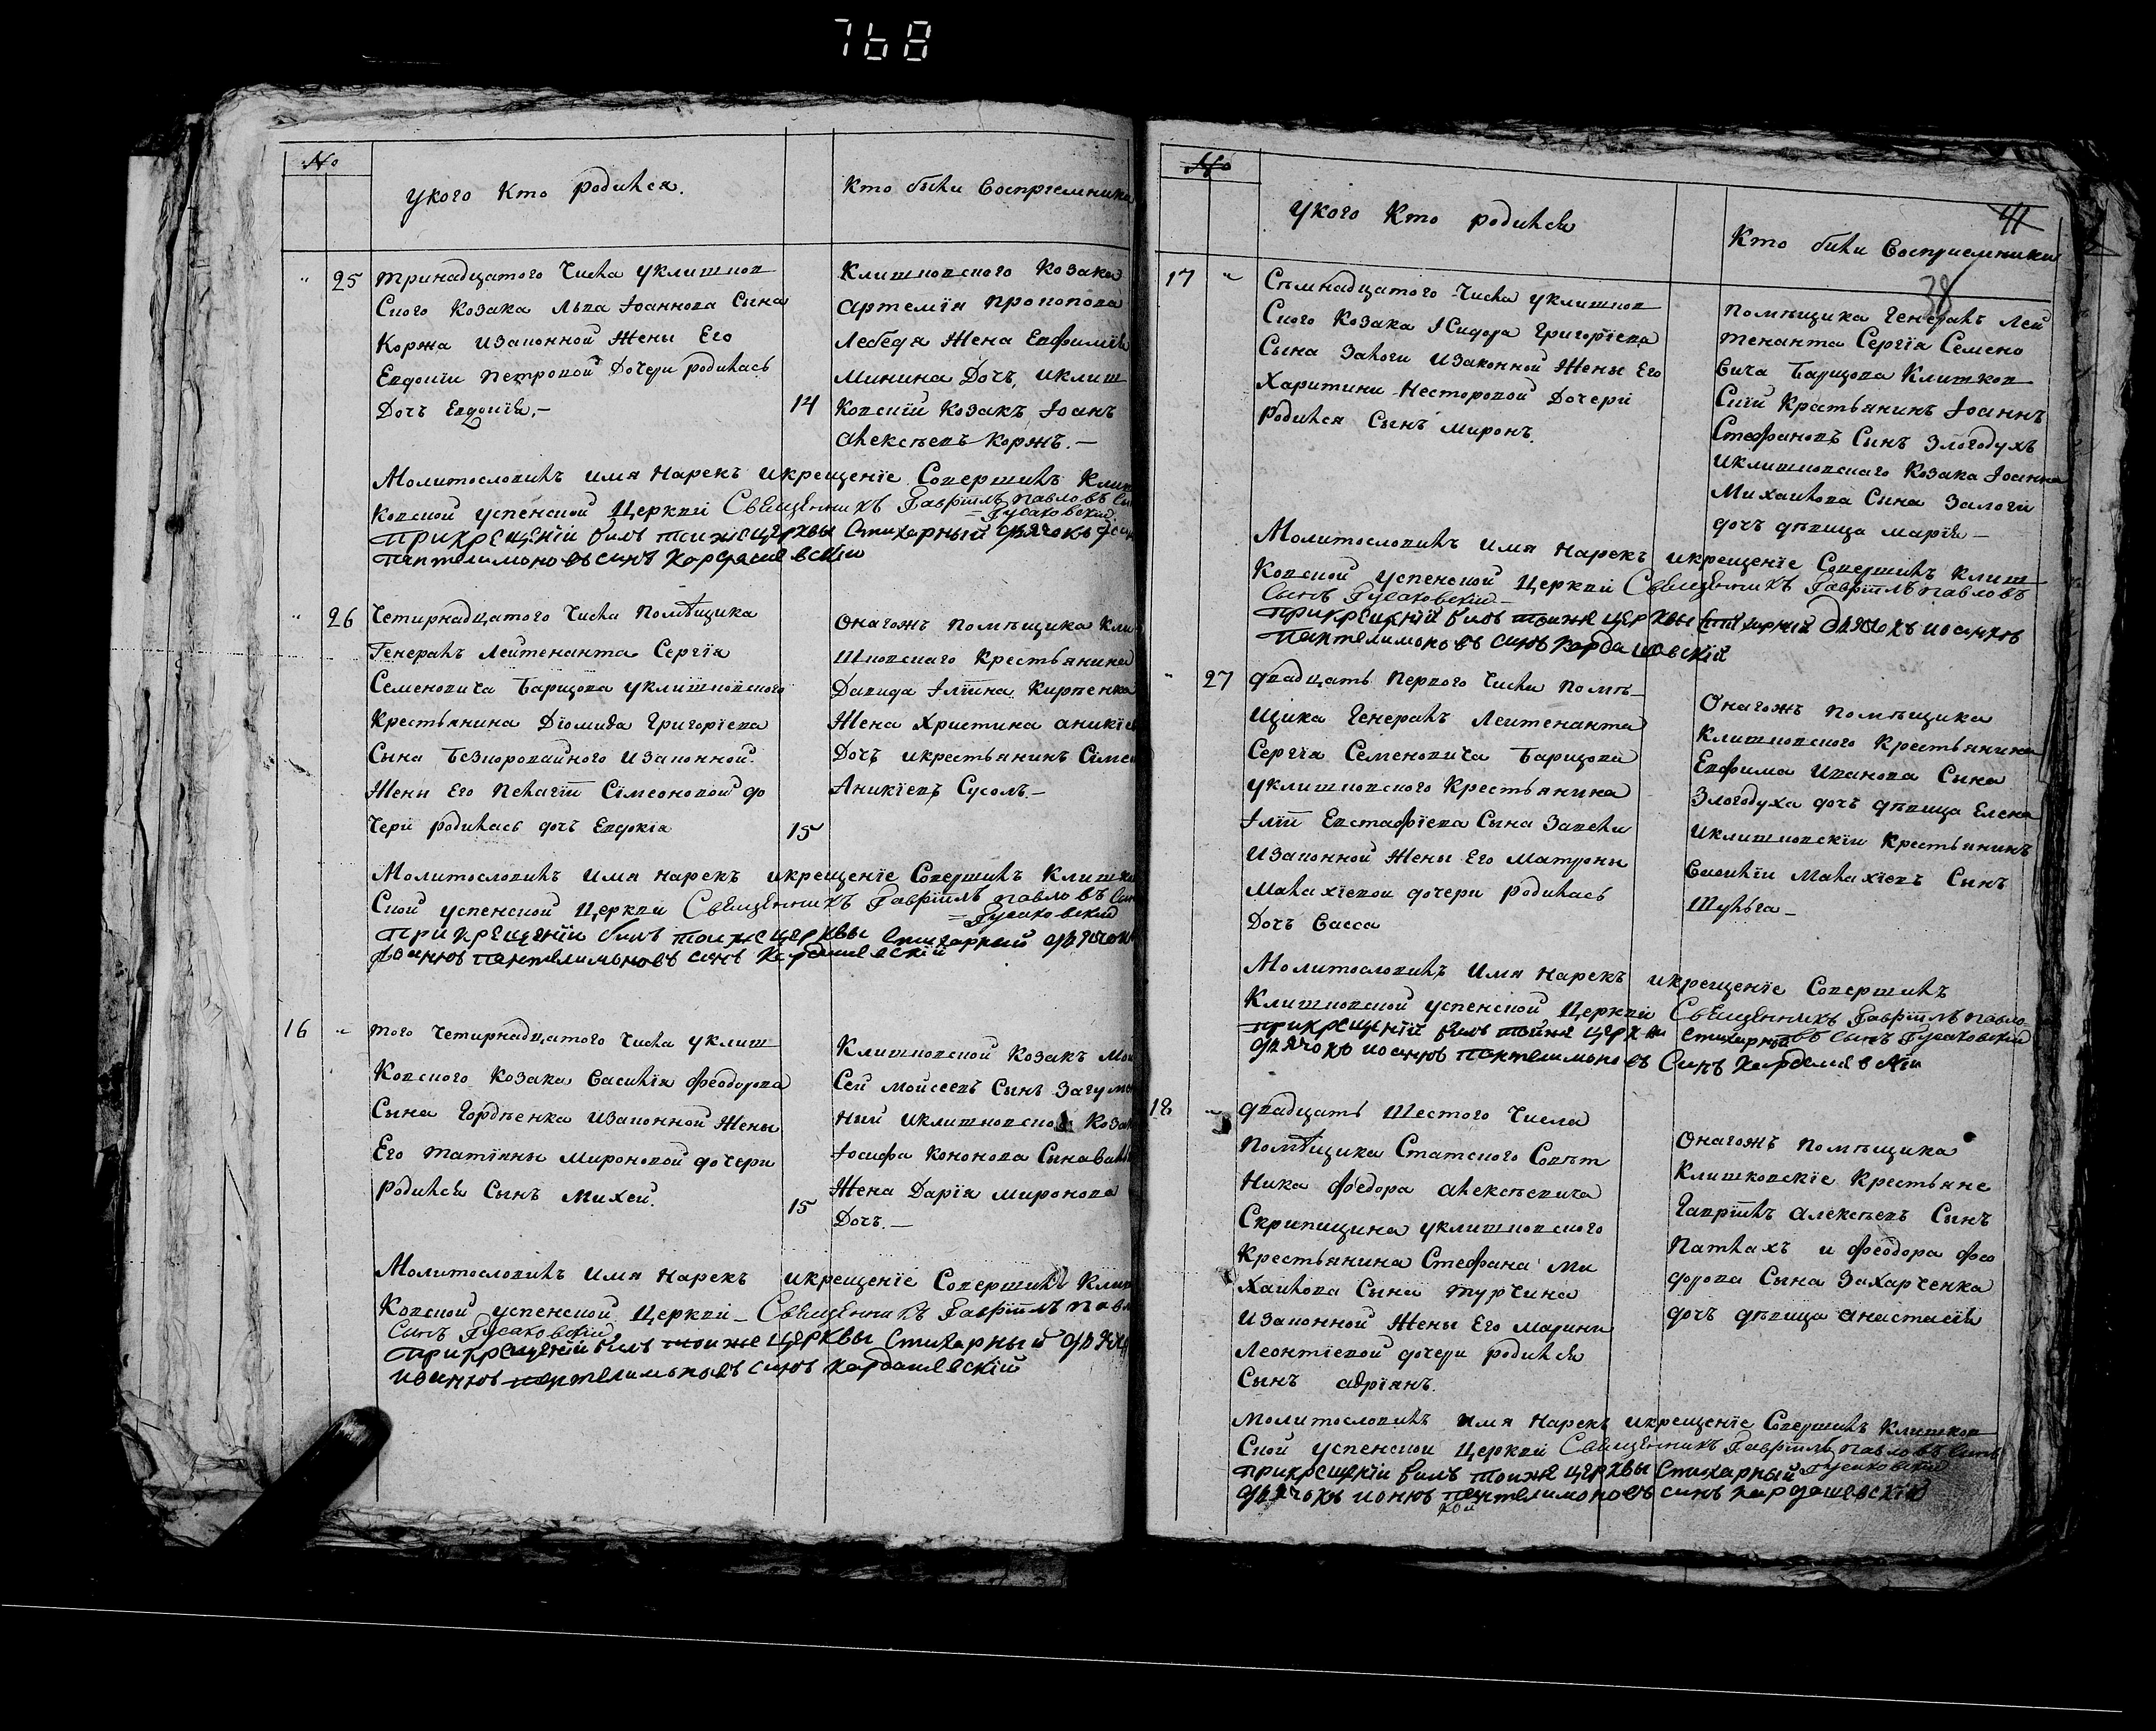 768
№
укого Кто родился.
Кто били Восприемники
25
тринадцатого Числа уклишков
Ского Козака Льва Іоаннова Сына
Коржа изаконной Жены Его
Евдокіи Петровой Дочери родилась
Дочъ Евдокія.-
14
Клишковского Козака
Артемія Прокопова
Лебедя Жена Евфимія
Минина Дочъ, иклиш
Ковскій Козакъ Іоанъ
Алексѣевъ Коржъ.-
Молитвословилъ имя Нарекъ икрещеніе Совершилъ Клиш
Ковской успенской Церкви Священникъ Гавріилъ Павловъ Сын
Гусаковский
прикрещеніи билъ тоижецерквы Стихарный дьячокъ
пантелимоновъ синъ Кардашевскій
26
Четирнадцатого Числа Помѣщика
Генералъ Лейтенанта Сергія
Семеновича Барщова уклишковского
Крестьянина Діомида Григоріева
Сына Безкоровайного изаконной
Жены Его Пелагіи Сімеоновой до
Чери родилась дочъ Евдокія
15
Онагожъ помѣщика Кли
Шковскаго Крестьянина
Давида Іліина Кирпенка
Жена Христина аникіев
Дочъ икрестьянинъ Сімео
Аникіевъ Сусолъ.-
Молитвословилъ имя нарекъ икрещеніе Совершилъ Клишков
Ской успенской Церкви Священникъ Гавріилъ Павловъ Син
Гусаковский
прикрещеніи билъ тоижецерквы Стихарный дьячокъ
Іоаннъ пантелимоновъ синъ Кардашевскій
16
того Четирнадцатого Числа уклиш
Ковского Козака Василія Феодорова
Сына Гордѣенка изаконной Жены
Его Татіяны Мироновой дочери
родился Сынъ Михей.
15
Клишковской Козакъ Мои
Сей Мойсеевъ Сынъ Загумен
ный иклишковского Козака
Іосифа Кононова Сына
Жена Дарія Миронова
Дочъ.-
Молитвословилъ имя Нарекъ икрещеніе Совершилъ Клиш
Ковской успенской Церкви - Священникъ Гавріилъ Павл
Синъ Гусаковский
прикрещеніи билъ тоиже церквы Стихарный дьячок
иоаннъ пантелимоновъ синъ Кардашевскій
№
укого Кто родился
41
Кто били Восприемники
38
17
Сѣмнадцатого Числа уклишков
Ского Козака Ісидора Григоріева
Сына Залоги изаконной Жены Его
Харитини Несторовой Дочери
родился Сынъ миронъ.
помѣщика Генералъ Лей
тенанта Сергія Семено
Вича Барщова Клишков
Скій Крестьянинъ Іоаннъ
Стефановъ Сынъ Злогодухъ
иклишковскаго Козака Іоанна
Михайлова Сына Залоги
дочъ дѣвица марія-
Молитвословилъ имя Нарекъ икрещеніе Совершилъ Клиш
Ковской успенской Церкви Священникъ Гавріилъ Павловъ
Сынъ Гусаковскій
прикрещеніи билъ тоиже церквы Стихарній дьячокъ иоаннъ
пантелимоновъ синъ Кардашовскій
27
двадцать первого Числа помѣ-
щика Генералъ Леитенанта
Сергія Семеновича Барщова
уклишковского Крестьянина
Іліи Евстафіева Сына
изаконной Жены Его Матроны
Малахіевои дочери родилась
Дочъ Васса
Онагожъ помѣщика
Клишковского Крестьянина
Евфима Иванова Сына
Злогодуха дочъ дѣвица Елена
иклишковскіи Крестьянинъ
Василіи Малахіевъ Сынъ
Шульга-
Молитвословилъ имя Нарекъ икрещеніе Совершилъ
Клишковской успенской Церкви Священникъ Гавріилъ Павло
въ Сынъ Гусаковский
прикрещеніи билъ тоиже церкви Стихарный
дьячокъ иоаннъ пантелимоновъ Синъ Кардашевскій
18
двадцать Шестого Числа
Помѣщика Статского Совѣт
Ника Федора Алексѣевича
Скрипицина уклишковского
Крестьянина Стефана Ми
Хаилова Сына Турчина
изаконной Жены Его Марини
Леонтіевой дочери родился
Сынъ адріянъ.
Онагожъ помѣщика
Клишковскіе Крестьяне
Гавріилъ Алексѣевъ Сынъ
Патлахъ и Феодора Фео
дорова Сына Захарченка
дочъ дѣвица Анастасія
Молитвословилъ имя Нарекъ икрещеніе Совершилъ Клишков
Ской успенскои Церкви Священникъ Гавріилъ Павловъ Синъ
Гусаковский
прикрещеніи билъ тоиже церквы Стихарный
дьячокъ ионнъ пантелимоновъ синъ Кардашевскій